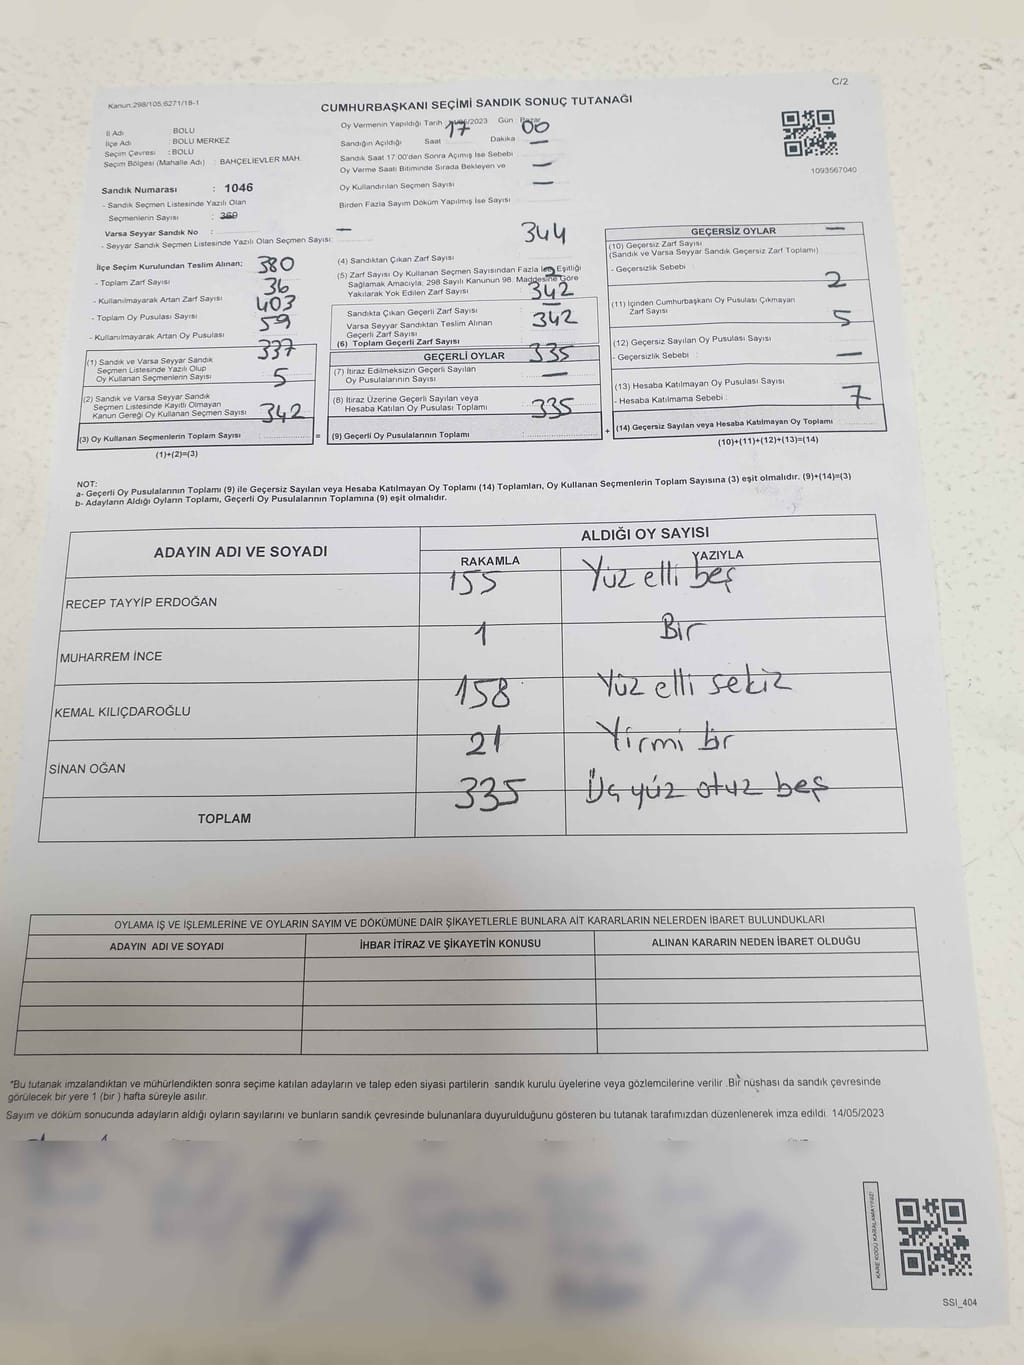 C/2
Kanun:298/105,6271/18-1
CUMHURBAŞKANI SEÇİMİ SANDIK SONUÇ TUTANAĞI
İl Adı : BOLU
İlçe Adı : BOLU MERKEZ
Seçim Çevresi : BOLU
Seçim Bölgesi (Mahalle Adı) : BAHÇELİEVLER MAH.
Sandık Numarası : 1046
- Sandık Seçmen Listesinde Yazılı Olan
Seçmenlerin Sayısı : 369
Varsa Seyyar Sandık No : —
- Seyyar Sandık Seçmen Listesinde Yazılı Olan Seçmen Sayısı:
İlçe Seçim Kurulundan Teslim Alınan; 380
- Toplam Zarf Sayısı 36
- Kullanılmayarak Artan Zarf Sayısı 403
- Toplam Oy Pusulası Sayısı 59
- Kullanılmayarak Artan Oy Pusulası
337
(1) Sandık ve Varsa Seyyar Sandık
Seçmen Listesinde Yazılı Olup
Oy Kullanan Seçmenlerin Sayısı 5
(2) Sandık ve Varsa Seyyar Sandık
Seçmen Listesinde Kayıtlı Olmayan
Kanun Gereği Oy Kullanan Seçmen Sayısı 342
(3) Oy Kullanan Seçmenlerin Toplam Sayısı =
(1)+(2)=(3)
Oy Vermenin Yapıldığı Tarih /2023 Gün : Pazar
17 00
Sandığın Açıldığı Saat Dakika —
Sandık Saat 17.00'den Sonra Açımış İse Sebebi
Oy Verme Saati Bitiminde Sırada Bekleyen ve —
Oy Kullandırılan Seçmen Sayısı —
Birden Fazla Sayım Döküm Yapılmış İse Sayısı
344
(4) Sandıktan Çıkan Zarf Sayısı
(5) Zarf Sayısı Oy Kullanan Seçmen Sayısından Fazla İse, Eşitliği
Sağlamak Amacıyla, 298 Sayılı Kanunun 98. Maddesine Göre 2
Yakılarak Yok Edilen Zarf Sayısı 342
Sandıkta Çıkan Geçerli Zarf Sayısı —
Varsa Seyyar Sandıktan Teslim Alınan 342
Geçerli Zarf Sayısı
(6) Toplam Geçerli Zarf Sayısı
GEÇERLİ OYLAR 335
(7) İtiraz Edilmeksizin Geçerli Sayılan
Oy Pusulalarının Sayısı —
(8) İtiraz Üzerine Geçerli Sayılan veya
Hesaba Katılan Oy Pusulası Toplamı 335
(9) Geçerli Oy Pusulalarının Toplamı +
1093567040
GEÇERSİZ OYLAR —
(10) Geçersiz Zarf Sayısı
(Sandık ve Varsa Seyyar Sandık Geçersiz Zarf Toplamı)
- Geçersizlik Sebebi : 2
(11) İçinden Cumhurbaşkanı Oy Pusulası Çıkmayan
Zarf Sayısı 5
(12) Geçersiz Sayılan Oy Pusulası Sayısı
- Geçersizlik Sebebi : —
(13) Hesaba Katılmayan Oy Pusulası Sayısı
- Hesaba Katılmama Sebebi : 7
(14) Geçersiz Sayılan veya Hesaba Katılmayan Oy Toplamı
(10)+(11)+(12)+(13)=(14)
NOT:
a- Geçerli Oy Pusulalarının Toplamı (9) ile Geçersiz Sayılan veya Hesaba Katılmayan Oy Toplamı (14) Toplamları, Oy Kullanan Seçmenlerin Toplam Sayısına (3) eşit olmalıdır. (9)+(14)=(3)
b- Adayların Aldığı Oyların Toplamı, Geçerli Oy Pusulalarının Toplamına (9) eşit olmalıdır.
ADAYIN ADI VE SOYADI ALDIĞI OY SAYISI
RAKAMLA YAZIYLA
RECEP TAYYİP ERDOĞAN 155 Yüz elli beş
MUHARREM İNCE 1 Bir
KEMAL KILIÇDAROĞLU 158 Yüz elli sekiz
SİNAN OĞAN 21 Yirmi bir
TOPLAM 335 Üç yüz otuz beş
OYLAMA İŞ VE İŞLEMLERİNE VE OYLARIN SAYIM VE DÖKÜMÜNE DAİR ŞİKAYETLERLE BUNLARA AİT KARARLARIN NELERDEN İBARET BULUNDUKLARI
ADAYIN ADI VE SOYADI İHBAR İTİRAZ VE ŞİKAYETİN KONUSU ALINAN KARARIN NEDEN İBARET OLDUĞU
"Bu tutanak imzalandıktan ve mühürlendikten sonra seçime katılan adayların ve talep eden siyasi partilerin sandık kurulu üyelerine veya gözlemcilerine verilir .Bir nüshası da sandık çevresinde
görülecek bir yere 1 (bir ) hafta süreyle asılır.
Sayım ve döküm sonucunda adayların aldığı oyların sayılarını ve bunların sandık çevresinde bulunanlara duyurulduğunu gösteren bu tutanak tarafımızdan düzenlenerek imza edildi. 14/05/2023
KARE KODU KARALAMAYINIZ!
SSI_404